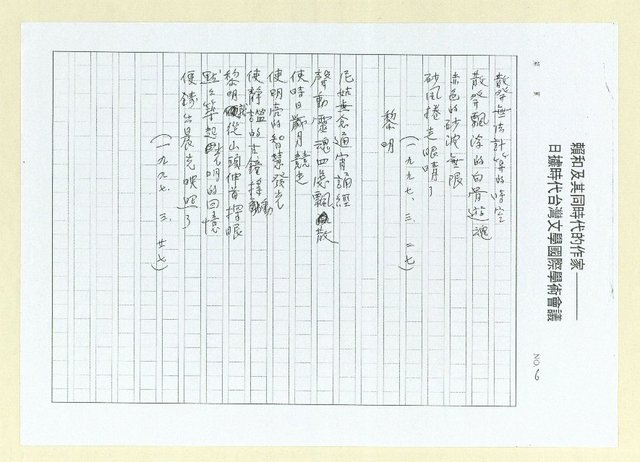 賴和及其同時代的作家——
日據時代台灣文學國際學術會議
NO. 6
散發無法計算的時空
散發飄深的白骨遊魂
赤色的砂波無限
砂風捲走眼睛了
(一九九七、三、二七)
黎明
尼姑無念通宵誦經
聲動靈魂四處飄散
使時日歲月競走
使明亮的智慧發光
使靜謐的古鐘擺動
黎明從山頭伸首探眼
點點築起時明的回憶
便鑄出晨光映照了
(一九九七、三、廿七)